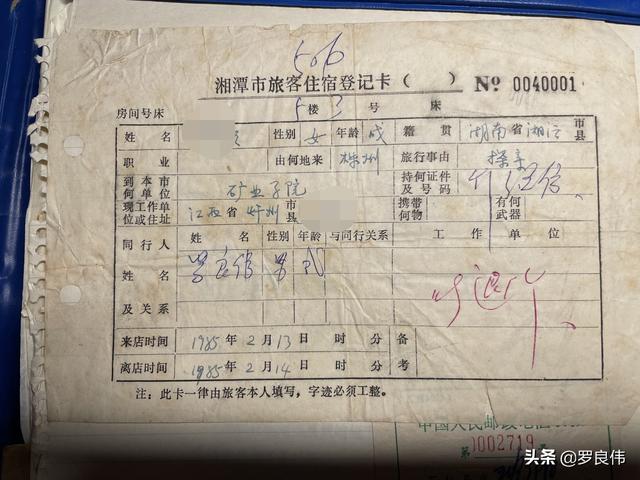 506
湘潭市旅客住宿登记卡（ ） № 0040001
房间号床 5楼 3 号 床
姓名 性别 女 年龄 成 籍贯 湖南省湘 市县
职业 由何地来 株州 旅行事由 探亲
到本市何单位 矿业学院 持何证件及号码
现工作单位或住址 江西省 市县 携带何物 有何武器
同行人 姓名 性别 年龄 与同行关系 工作单位
姓名 罗良伟 男
及关系
来店时间 1985年2月13日 时 分 备
离店时间 1985年2月14日 时 分 考
注：此卡一律由旅客本人填写，字迹必须工整。
中国人民邮政
第0002719号
头条 @罗良伟